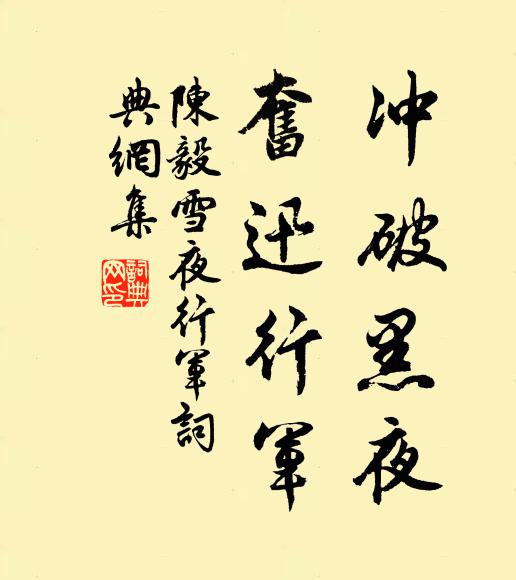 冲破黑夜
奮迅行軍
陳毅雪夜行軍詞
典網集
詞典
网印